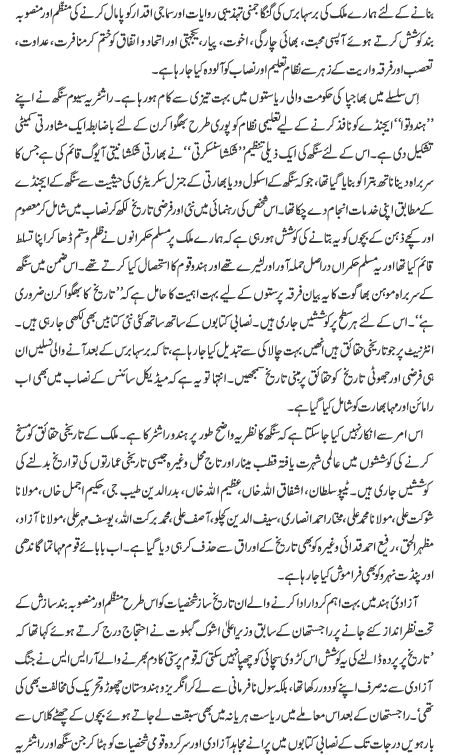 بنانے کے لئے ہمارے ملک کی برسہابرس کی گنگا جمنی تہذیبی روایات اور سماجی اقدار کو پامال کرنے کی منظم اور منصوبہ
بند کوشش کرتے ہوئے آپسی محبت، بھائی چارگی، اخوت، پیار، یکجہتی اور اتحاد و اتفاق کو ختم کر منافرت، عداوت،
تعصب اور فرقہ واریت کے زہر سے نظام تعلیم اور نصاب کو آلودہ کیا جارہا ہے۔
اِس سلسلے میں بھاجپا کی حکومت والی ریاستوں میں بہت تیزی سے کام ہو رہا ہے۔ راشٹریہ سیوم سنگھ نے اپنے
’’ہندوتوا‘‘ ایجنڈے کو نافذ کرنے کے لیے تعلیمی نظام کو پوری طرح بھگوا کرن کے لئے باضابطہ ایک مشاورتی کمیٹی
تشکیل دی ہے۔ اس کے لئے سنگھ کی ایک ذیلی تنظیم ’’شکشا سنسکرتی‘‘ نے بھارتی شکشا نیتی آیوگ قائم کی ہے جس کا
سربراہ دینا ناتھ بترا کو بنایا گیا تھا، جو کہ سنگھ کے اسکول ودیا بھارتی کے جنرل سکریٹری کی حیثیت سے سنگھ کے ایجنڈے
کے مطابق اپنی خدمات انجام دے چکا تھا۔ اس شخص کی رہنمائی میں نئی اور فرضی تاریخ لکھ کر نصاب میں شامل کر معصوم
اور کچے ذہن کے بچوں کو یہ بتانے کی کوشش ہو رہی ہے کہ ہمارے ملک پر مسلم حکمرانوں نے ظلم و ستم ڈھا کر اپنا تسلط
قائم کیا تھا اور یہ مسلم حکمراں دراصل حملہ آور اور لٹیرے تھے اور ہندو قوم کا استحصال کیا کرتے تھے۔ اس ضمن میں سنگھ
کے سربراہ موہن بھاگوت کا یہ بیان فرقہ پرستوں کے لیے بہت اہمیت کا حامل ہے کہ ’’تاریخ کا بھگوا کرن ضروری
ہے‘‘۔ اس کے لئے ہر سطح پر کوششیں جاری ہیں۔ نصابی کتابوں کے ساتھ ساتھ کئی نئی کتابیں بھی لکھی جا رہی ہیں۔
انٹرنیٹ پر جو تاریخی حقائق ہیں انھیں بہت چالاکی سے تبدیل کیا جا رہا ہے، تاکہ برسہابرس کے بعد آنے والی نسلیں ان
ہی فرضی اور جھوٹی تاریخ کو حقائق پر مبنی تاریخ سمجھیں۔ انتہا تو یہ ہے کہ میڈیکل سائنس کے نصاب میں بھی اب
رامائن اور مہابھارت کو شامل کیا گیا ہے۔
اس امر سے انکار نہیں کیا جا سکتا ہے کہ سنگھ کا نظریہ واضح طور پر ہندو راشٹر کا ہے۔ ملک کے تاریخی حقائق کو مسخ
کرنے کی کوششوں میں عالمی شہرت یافتہ قطب مینار اور تاج محل وغیرہ جیسی تاریخی عمارتوں کی تواریخ بدلنے کی
کوششیں جاری ہیں۔ ٹیپو سلطان، اشفاق اللہ خاں، عظیم اللہ خاں، بدرالدین طیب جی، حکیم اجمل خاں، مولانا
شوکت علی، مولانا محمد علی، مختار احمد انصاری، سیف الدین کچلو، آصف علی، محمد برکت اللہ، یوسف مہر علی، مولانا آزاد،
مظہرالحق، رفیع احمد قدوائی وغیرہ کو بھی تاریخ کے اوراق سے حذف کر ہی دیا گیا ہے۔ اب بابائے قوم مہاتما گاندھی
اور پنڈت نہرو کو بھی فراموش کیا جا رہا ہے۔
آزادیٔ ہند میں بہت اہم کردار ادا کرنے والے ان تاریخ ساز شخصیات کو اس طرح منظّم اور منصوبہ بند سازش کے
تحت نظر انداز کئے جانے پر راجستھان کے سابق وزیر اعلیٰ اشوک گہلوت نے احتجاج درج کرتے ہوئے کہا تھا کہ
’تاریخ پر پردہ ڈالنے کی یہ کوشش اس کڑوی سچائی کو چھپا نہیں سکتی کہ قوم پرستی کا دم بھرنے والے آر ایس ایس نے جنگ
آزادی سے نہ صرف اپنے کو دور رکھا تھا، بلکہ سول نافرمانی سے لے کر انگریزو ہندوستان چھوڑو تحریک کی مخالفت بھی کی
تھی‘۔ راجستھان کے بعد اس معاملے میں ریاست ہریانہ میں بھی سبقت لے جاتے ہوئے بچوں کے چھٹے کلاس سے
بارہویں درجات تک کے نصابی کتابوں میں پرانے مجاہد آزادی اور سر کردہ قومی شخصیات کو ہٹا کر جن سنگھ اور راشٹریہ